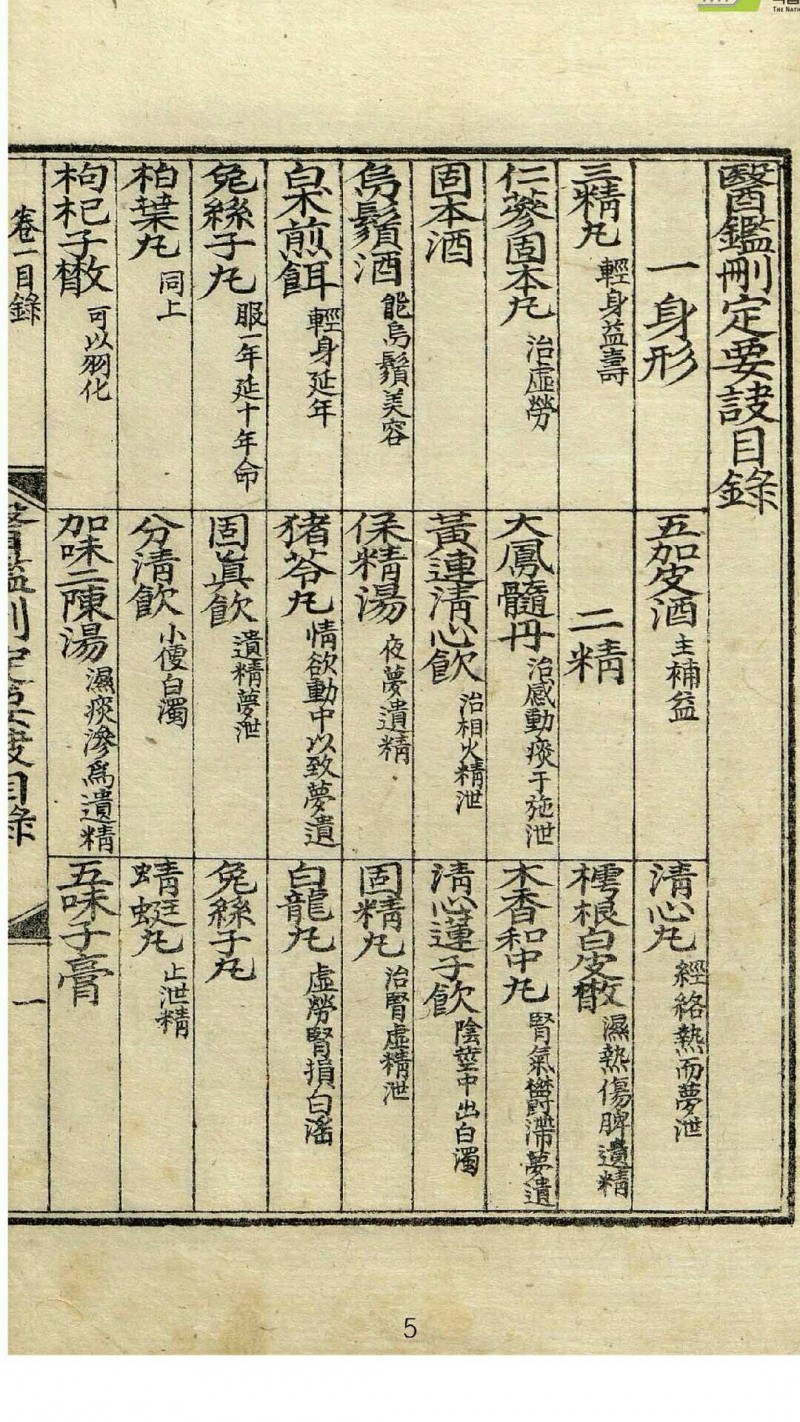 醫鑑刪定要訣目錄
一身形
三精丸 輕身益壽
仁蔘固本丸 治虛勞
固本酒
烏鬚酒 能烏鬚美容
白朮煎餌 輕身延年
兔絲子丸 服一年延十年命
柏葉丸 同上
枸杞子散 可以羽化
五加皮酒 主補益
二精
大鳳髓丹 治感動痰于施泄
黃連淸心飮 治相火精泄
保精湯 夜夢遺精
猪苓丸 情欲動中以致夢遺
固眞飮 遺精夢泄
分淸飮 小便白濁
加味二陳湯 濕痰滲爲遺精
淸心丸 經絡熱而夢泄
樗根白皮散 濕熱傷脾遺精
木香和中丸 腎氣欝滯夢遺
淸心蓮子飮 陰莖中出白濁
固精丸 治腎虛精泄
白龍丸 虛勞腎損白淫
兔絲子丸
蜻蜓丸 止泄精
五味子膏
卷一目錄
醫鑑刪定要訣目錄
一
5
THE NATI